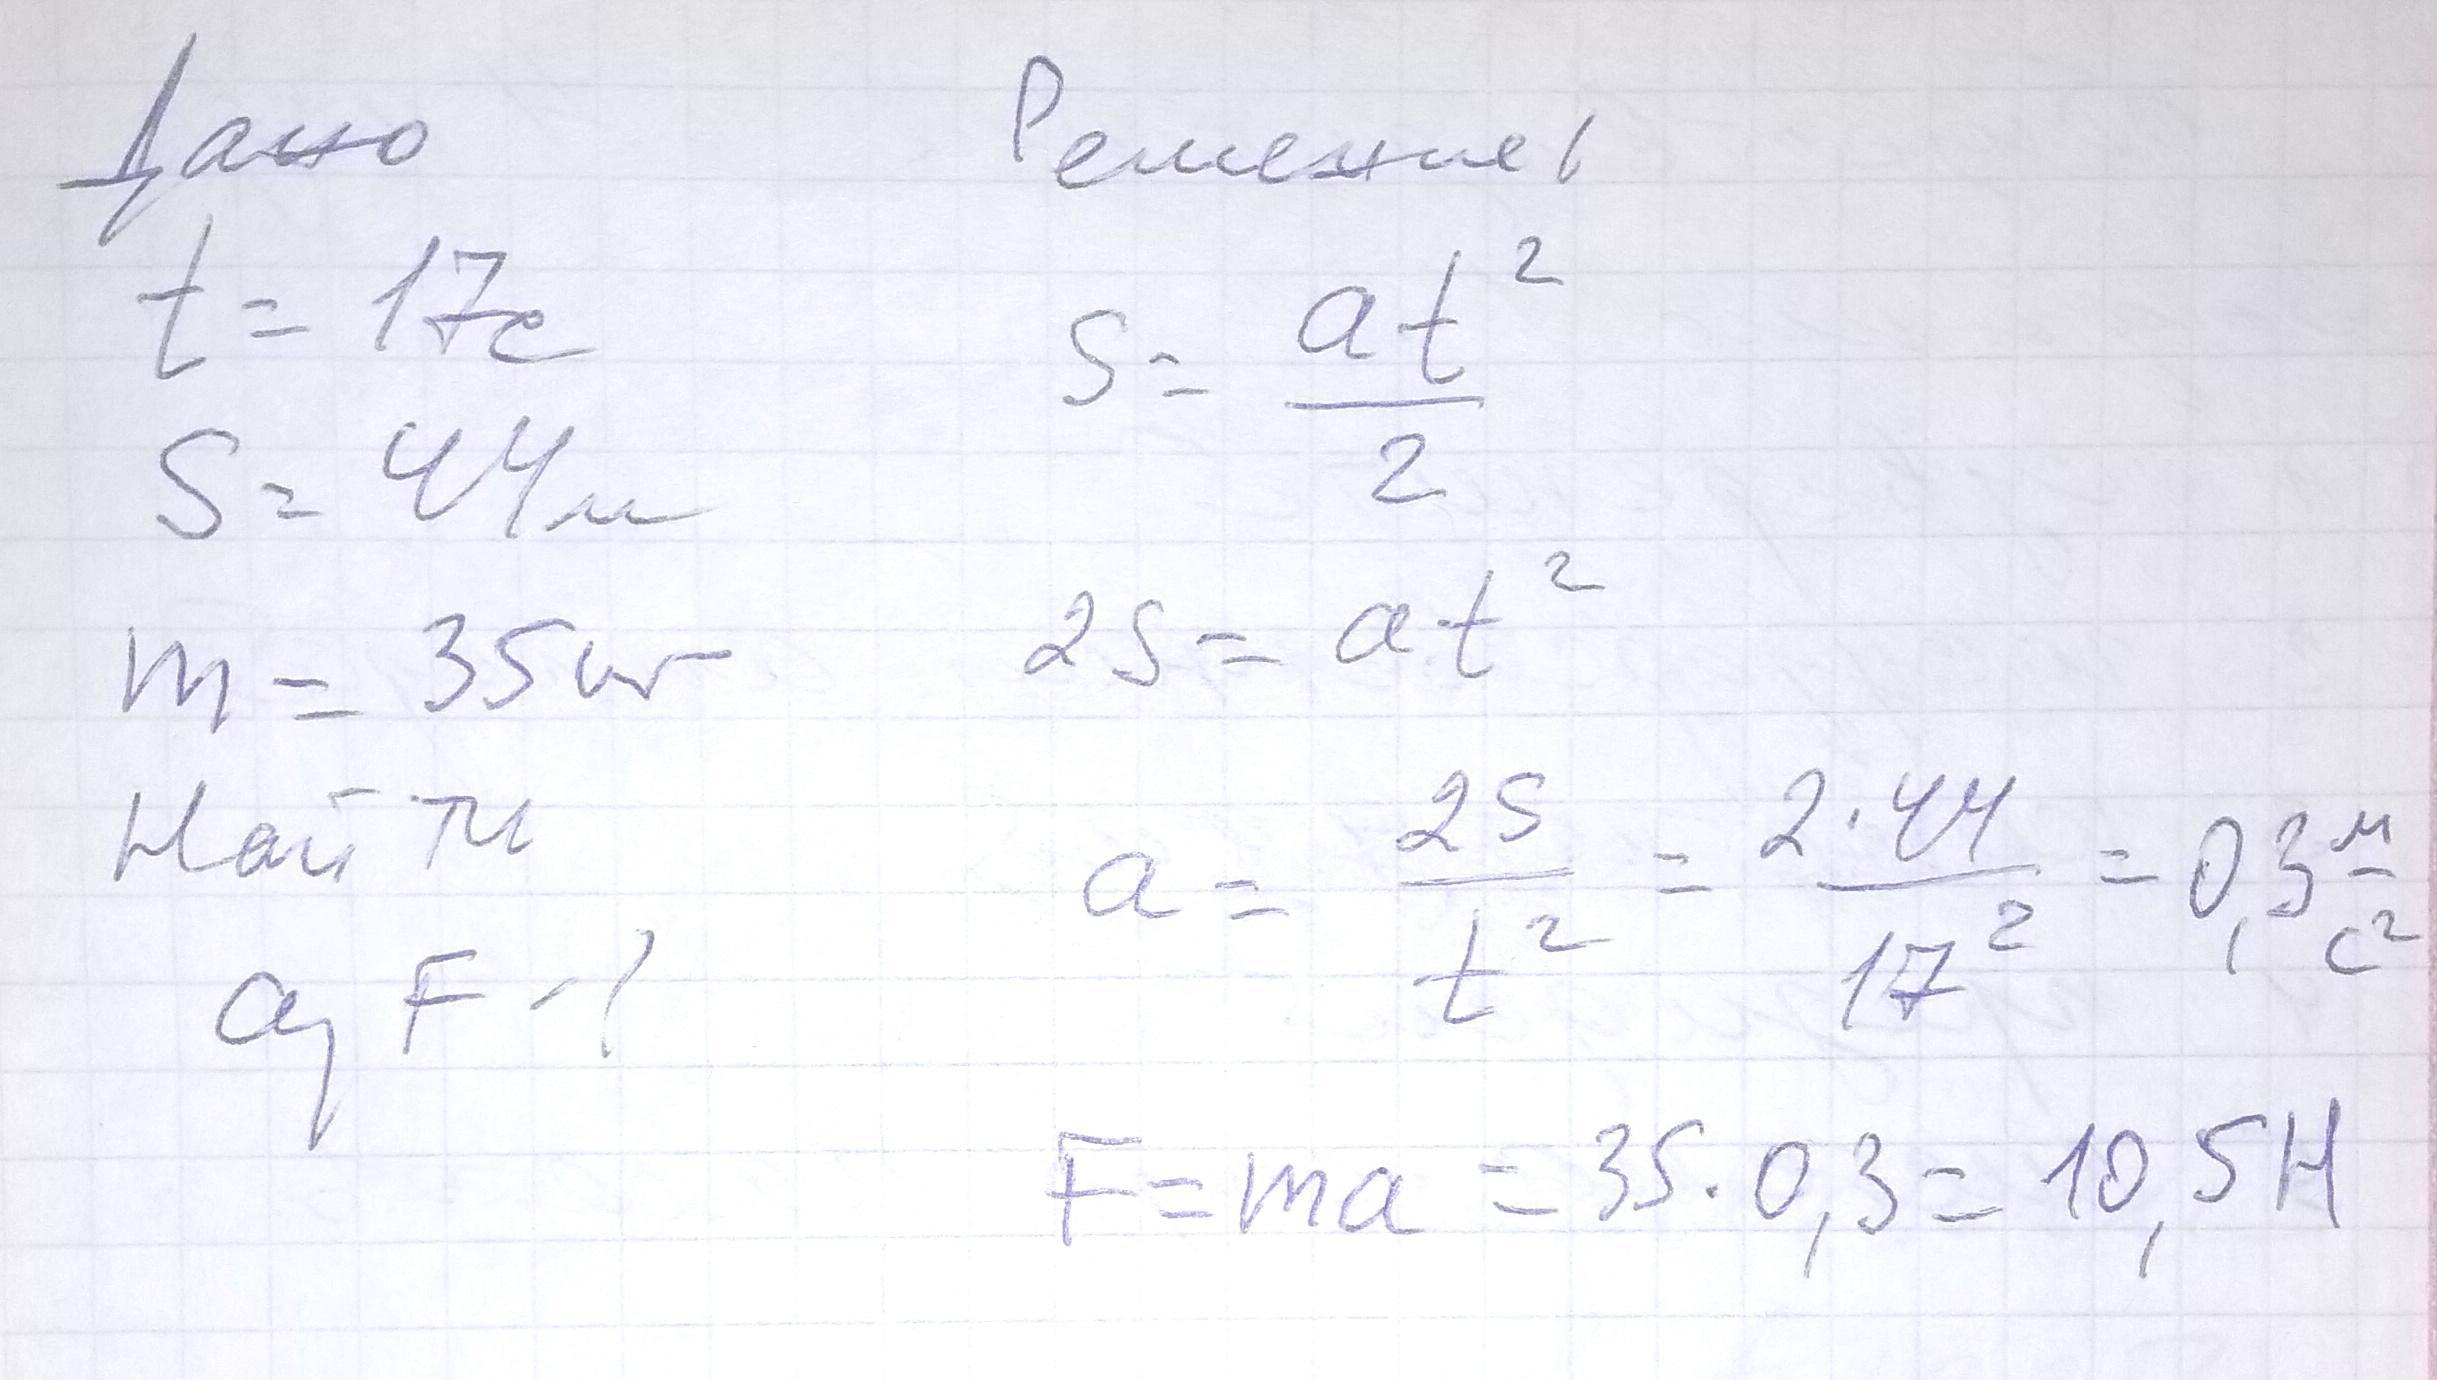 Дано
t = 17с
S = 44м
m = 35кг
Найти
a, F - ?
Решение:
S = at²/2
2S = at²
a = 2S/t² = 2·44/17² = 0,3 м/с²
F = ma = 35·0,3 = 10,5Н